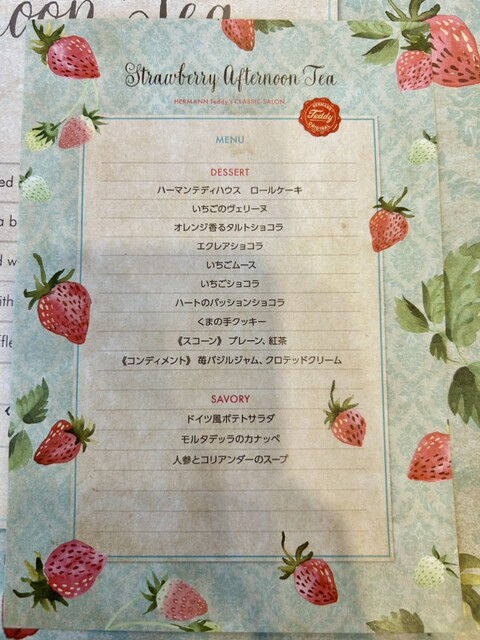 oon Tea
Strawberry Afternoon Tea
HERMANN Teddy's CLASSIC SALON
HERMANN
Teddy
ORIGINAL
MENU
DESSERT
ハーマンテディハウス　ロールケーキ
いちごのヴェリーヌ
オレンジ香るタルトショコラ
エクレアショコラ
いちごムース
いちごショコラ
ハートのパッションショコラ
くまの手クッキー
《スコーン》 プレーン、紅茶
《コンディメント》 苺バジルジャム、クロテッドクリーム
SAVORY
ドイツ風ポテトサラダ
モルタデッラのカナッペ
人参とコリアンダーのスープ